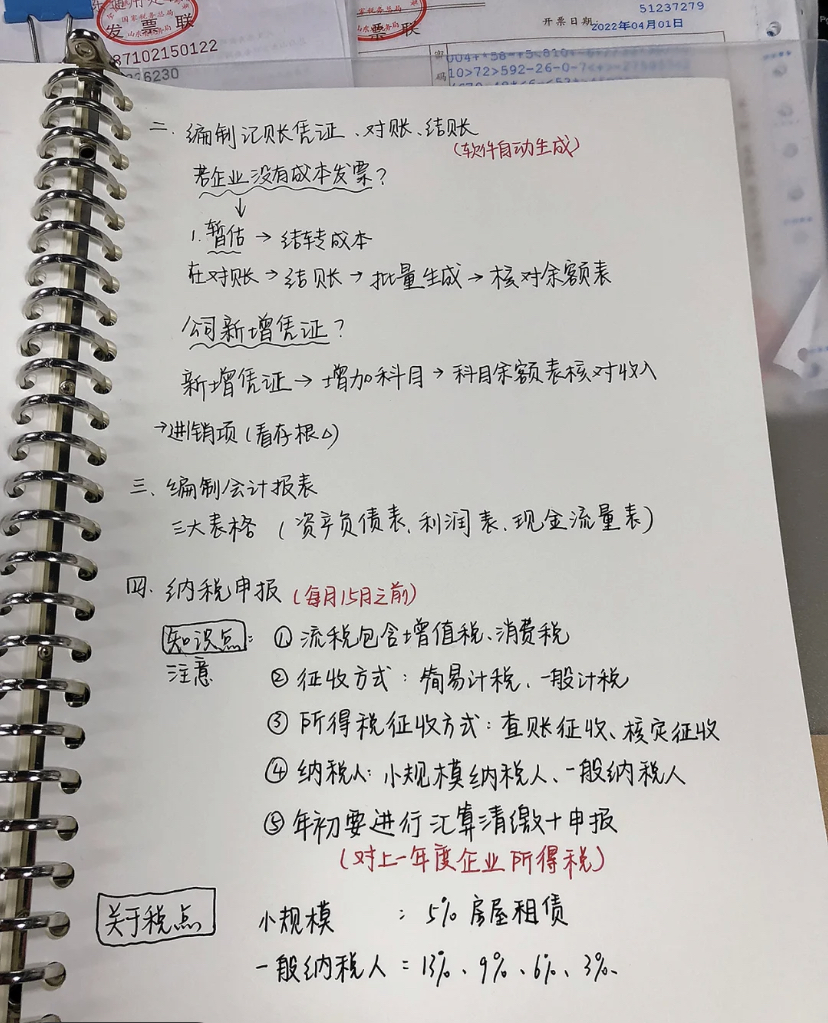 国家税务总局
发 票 联
87102150122
国家税务总局
票 联
51237279
开票日期:
2022年04月01日
10>72>592-26-0-7
二. 编制记账凭证、对账、结账
(软件自动生成)
若企业没有成本发票?
↓
1.暂估→结转成本
在对账→结账→批量生成→核对余额表
公司新增凭证?
新增凭证→增加科目→科目余额表核对收入
→进销项(看存根△)
三、编制会计报表
三大表格(资产负债表、利润表、现金流量表)
四. 纳税申报(每月15月之前)
知识点:①流税包含增值税、消费税
注意
②征收方式:简易计税、一般计税
③所得税征收方式:查账征收、核定征收
④纳税人:小规模纳税人、一般纳税人
⑤年初要进行汇算清缴+申报
(对上一年度企业所得税)
关于税点
小规模 :5%房屋租赁
一般纳税人=13%、9%、6%、3%、